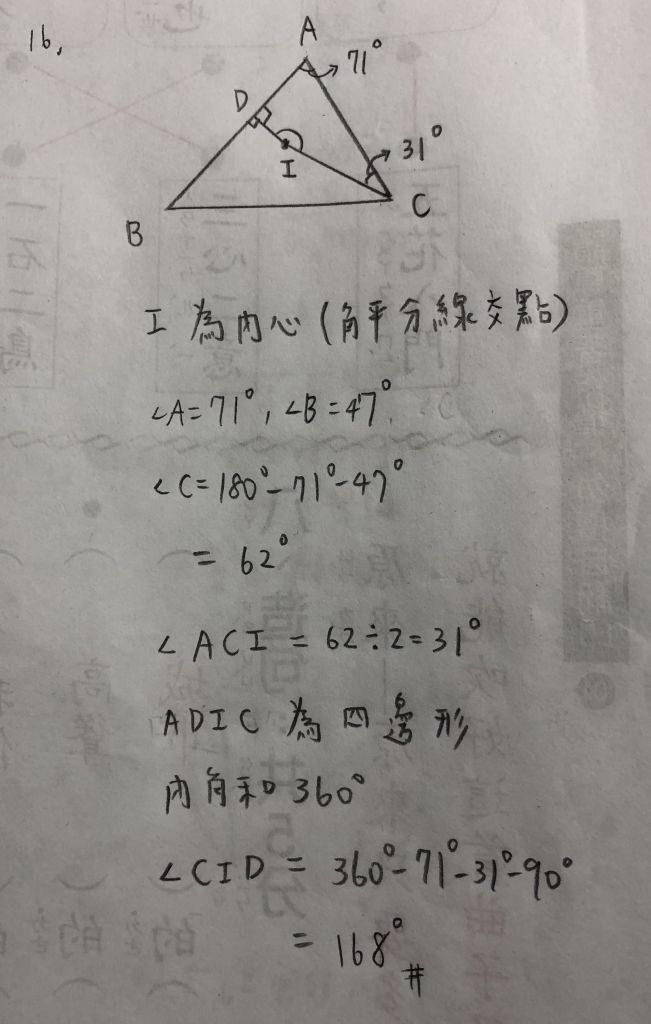 16.
A
71°
D
31°
I
C
B
I 為內心(角平分線交點)
∠A=71°, ∠B=47°
∠C=180°-71°-47°
= 62°
∠ACI = 62÷2=31°
ADIC 為四邊形
內角和360°
∠CID = 360°-71°-31°-90°
= 168° #